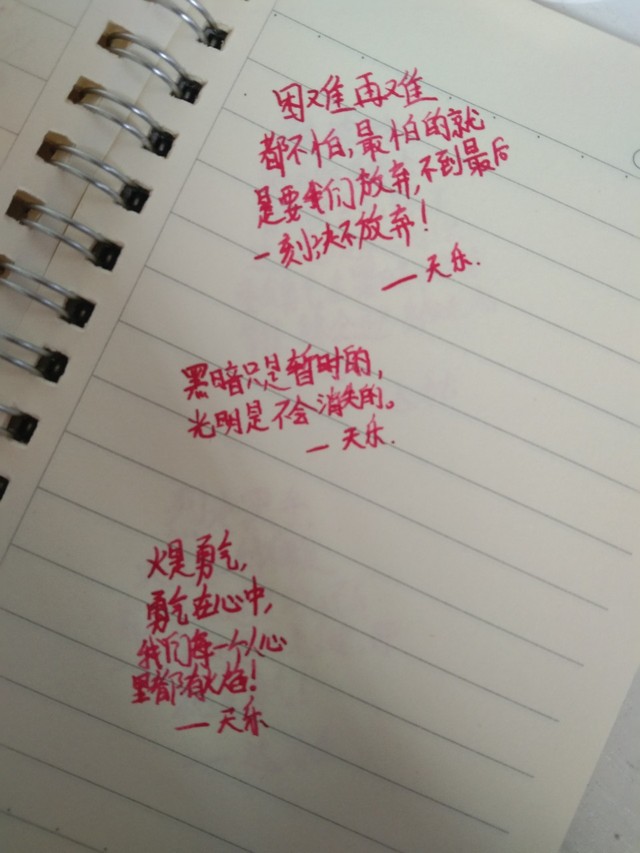 困难再难
都不怕,最怕的就
是要我们放弃,不到最后
一刻决不放弃!
—天乐.
黑暗只是暂时的,
光明是不会消失的。
—天乐.
火是勇气,
勇气在心中,
我们每一个人心
里都有火焰!
—天乐